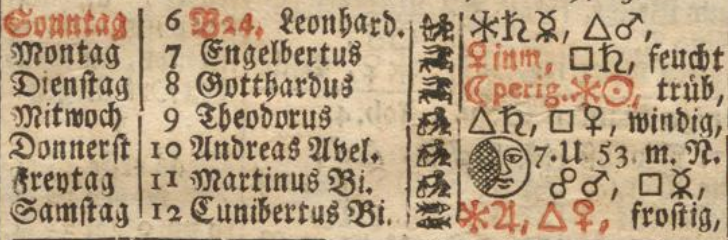 Sonntag 6 B24. Leonhard. ⚹♄☿, △♂,
Montag 7 Engelbertus ♀ inm, □♄, feucht
Dienſtag 8 Gotthardus ☾ perig. ⚹☉, trüb,
Mitwoch 9 Theodorus △♄, □♀, windig,
Donnerſt 10 Andreas Avel. 7. U 53. m. N.
Freytag 11 Martinus Bi. ☍♂, □☿,
Samſtag 12 Cunibertus Bi. ⚹♃, △♀, froſtig,